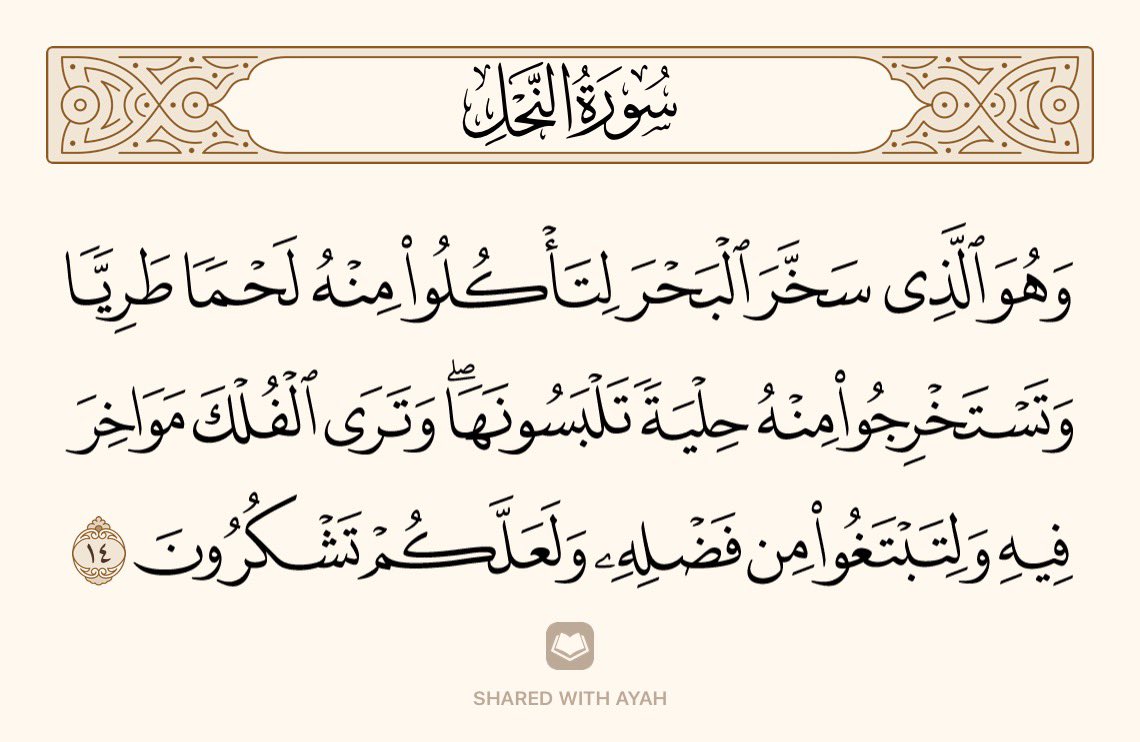 سُورَةُ النَّحْلِ
وَهُوَ ٱلَّذِى سَخَّرَ ٱلْبَحْرَ لِتَأْكُلُوا۟ مِنْهُ لَحْمًا طَرِيًّا
وَتَسْتَخْرِجُوا۟ مِنْهُ حِلْيَةً تَلْبَسُونَهَاۖ وَتَرَى ٱلْفُلْكَ مَوَاخِرَ
فِيهِ وَلِتَبْتَغُوا۟ مِن فَضْلِهِۦ وَلَعَلَّكُمْ تَشْكُرُونَ ١٤
SHARED WITH AYAH